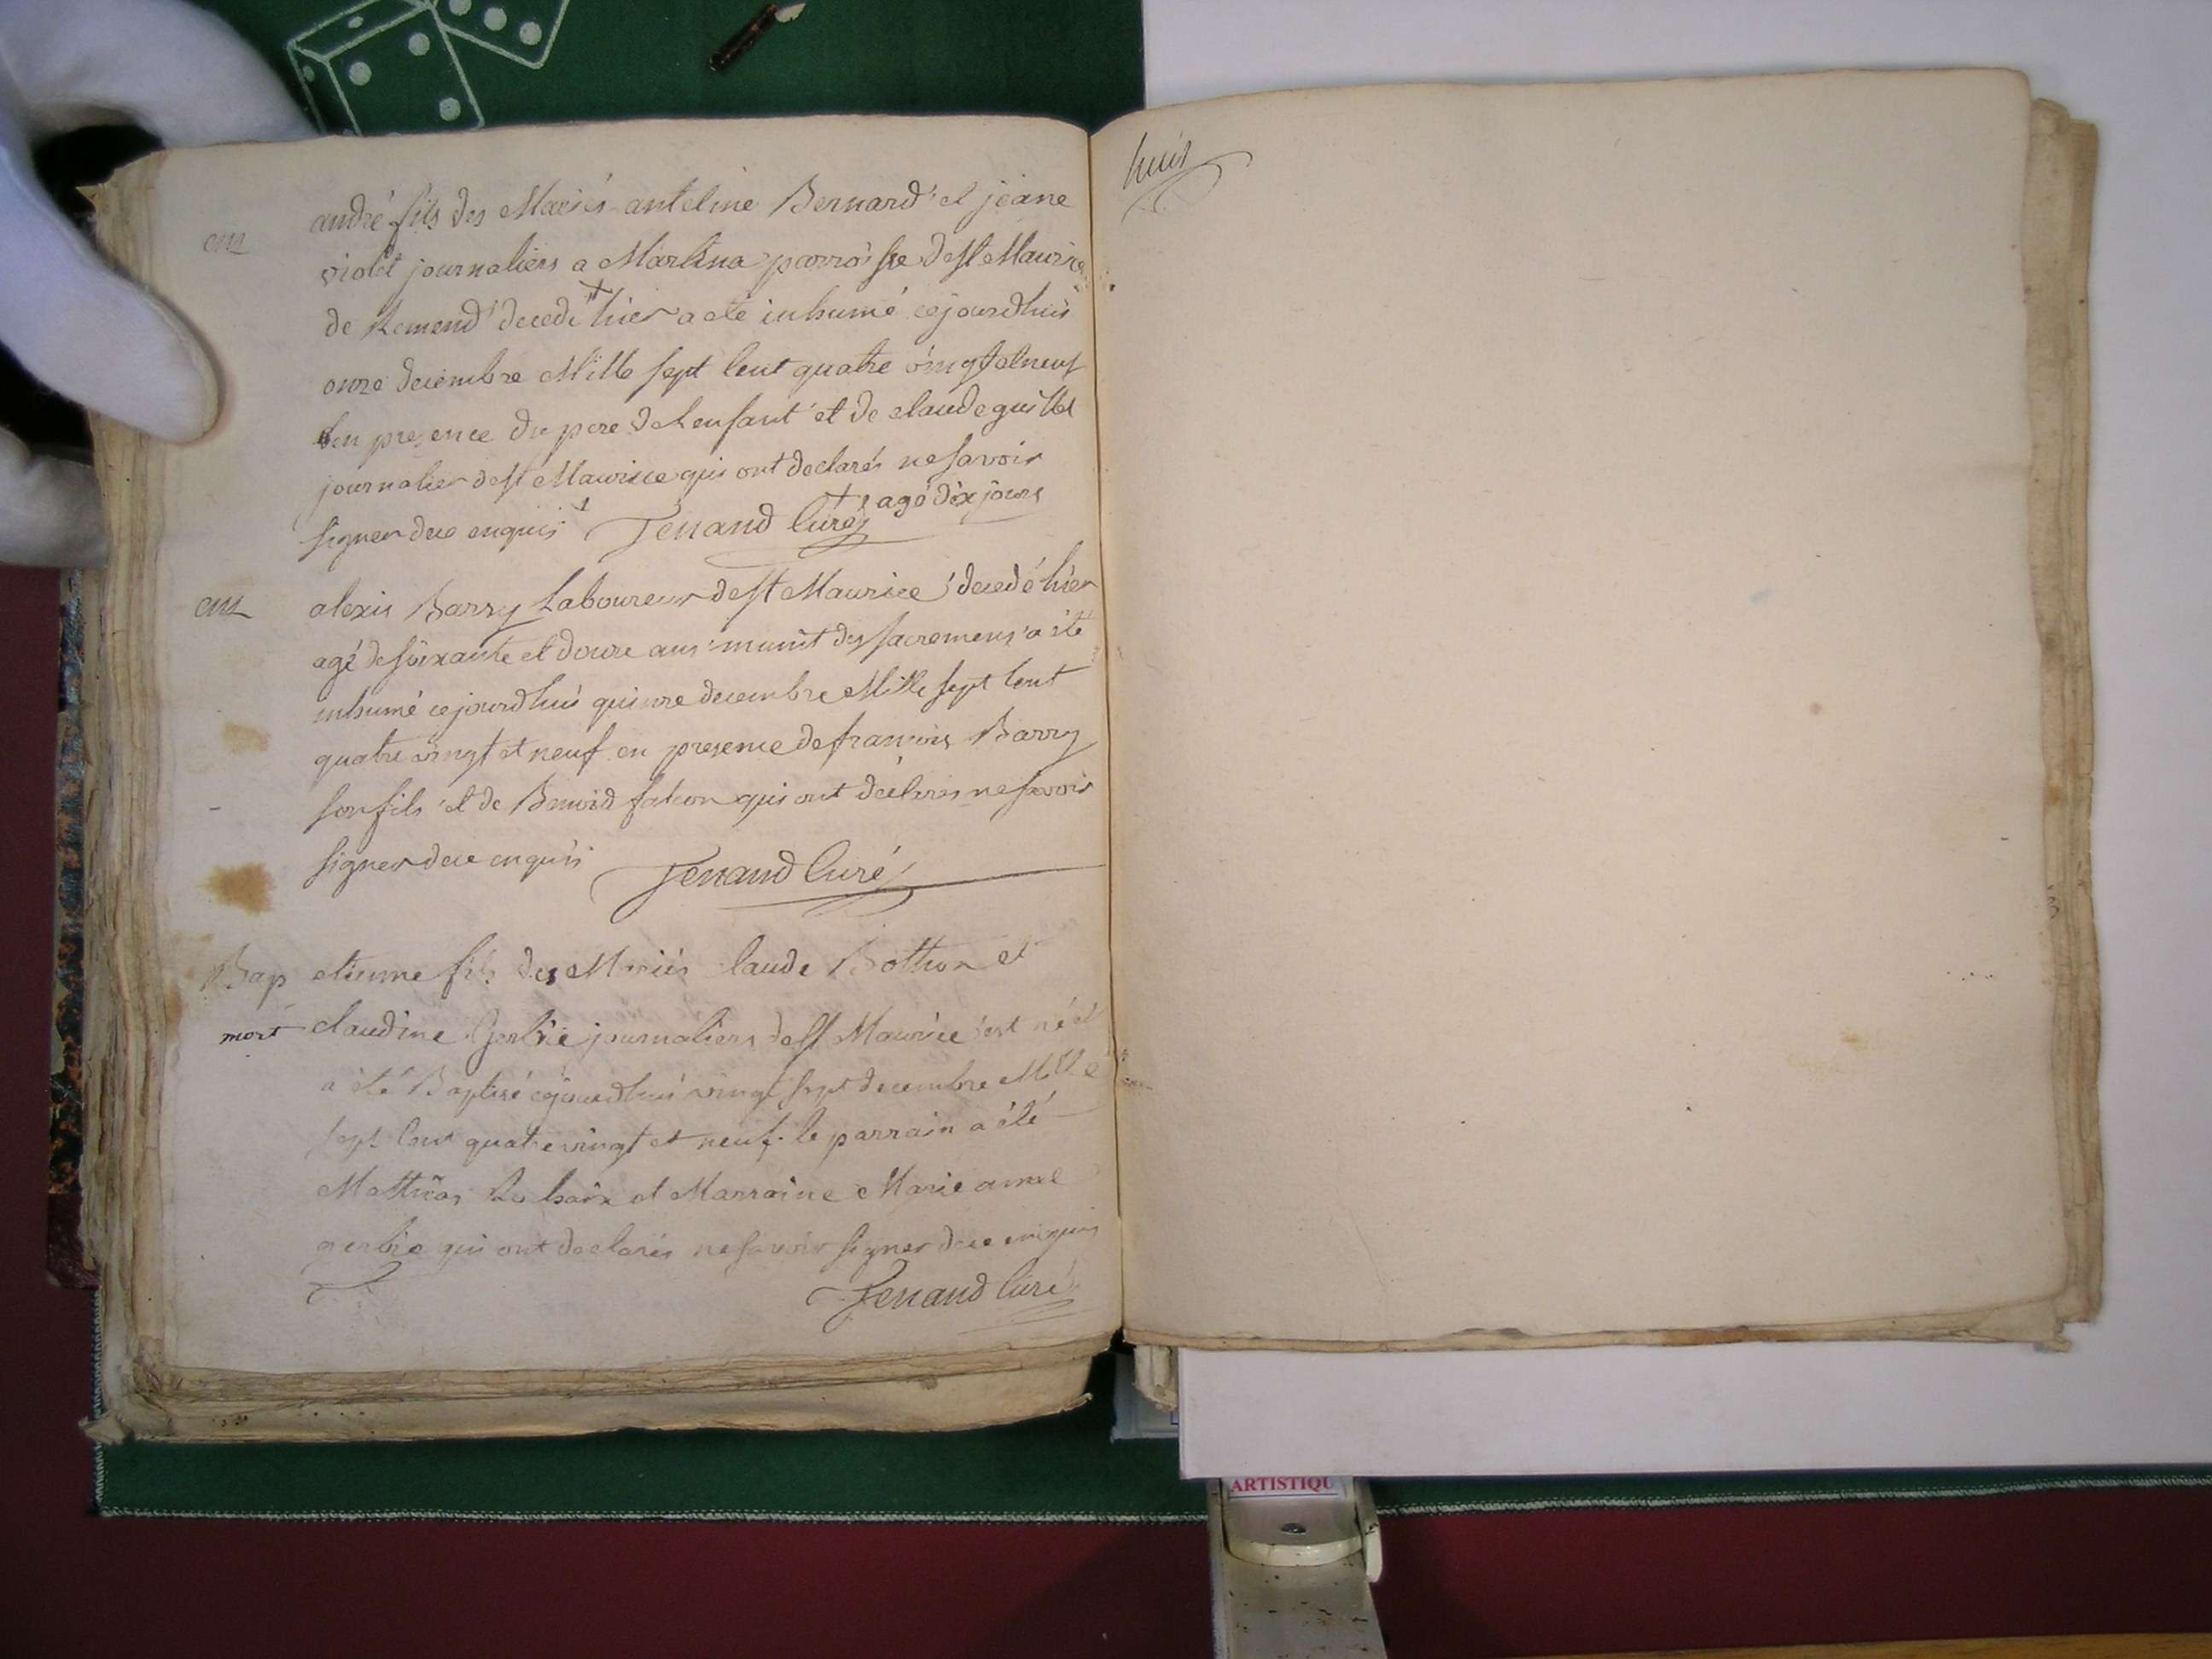 em
andré fils des Mariés antelme Bernard et jeane
violet journaliers a Martina parroisse de st Maurice
de Remend decedé + hier a eté inhumé cejourdhui
onze decembre Mille sept Cent quatre vingt et neuf
en presence du pere de Lenfant et de claude guillet
journalier de st Maurice qui ont declarés ne savoir
signer de ce enquis Jenand Curé + agé dix jours
em
alexis Barry Laboureur de st Maurice decedé hier
agé de soixante et douze ans munit des sacremens a ete
inhumé cejourdhui quinze decembre Mille sept Cent
quatre vingt et neuf en presence de francois Barry
son fils et de Benoid falcon qui ont déclarés ne savoir
signer de ce enquis Jenand Curé
Bap
mort
etienne fils des Mariés Claude Botton et
claudine Gerbie journaliers de st Maurice est né et
a été Baptisé cejourdhui vingt sept decembre Mille
sept Cent quatre vingt et neuf. le parrain a été
Mathias et Marraine Marie anne
gerbie qui ont declarés ne savoir signer de ce enquis
Jenand Curé
huit
ARTISTIQU